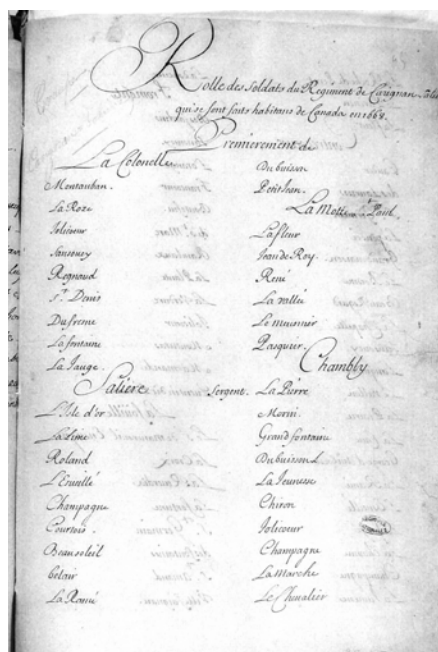 Rolle des soldats du Regiment de Carignan
qui se sont faits habitans de Canada en 1668.
Premierement de
La Colonelle
Montauban.
La Roze
Jolicoeur
Sansoucy
Regnaud
St. Denis
Dufresne
La fontaine
La Jauge.
Saliere
L'Isle d'or
La Lime
Roland
L'Eveillé
Champagne
Courtois.
Beausoleil
belair
La Ramé
Dubuisson
Petit Jean.
La Motte St. Paul
La fleur
Jean de Roy.
René
La vallé
Le meusnier
Pasquier.
Chambly
Sergent. La Pierre
Morin
Grand fontaine
Dubuisson
La Jeunesse
Chiron
Jolicoeur
Champagne
La Marche
Le Chevalier